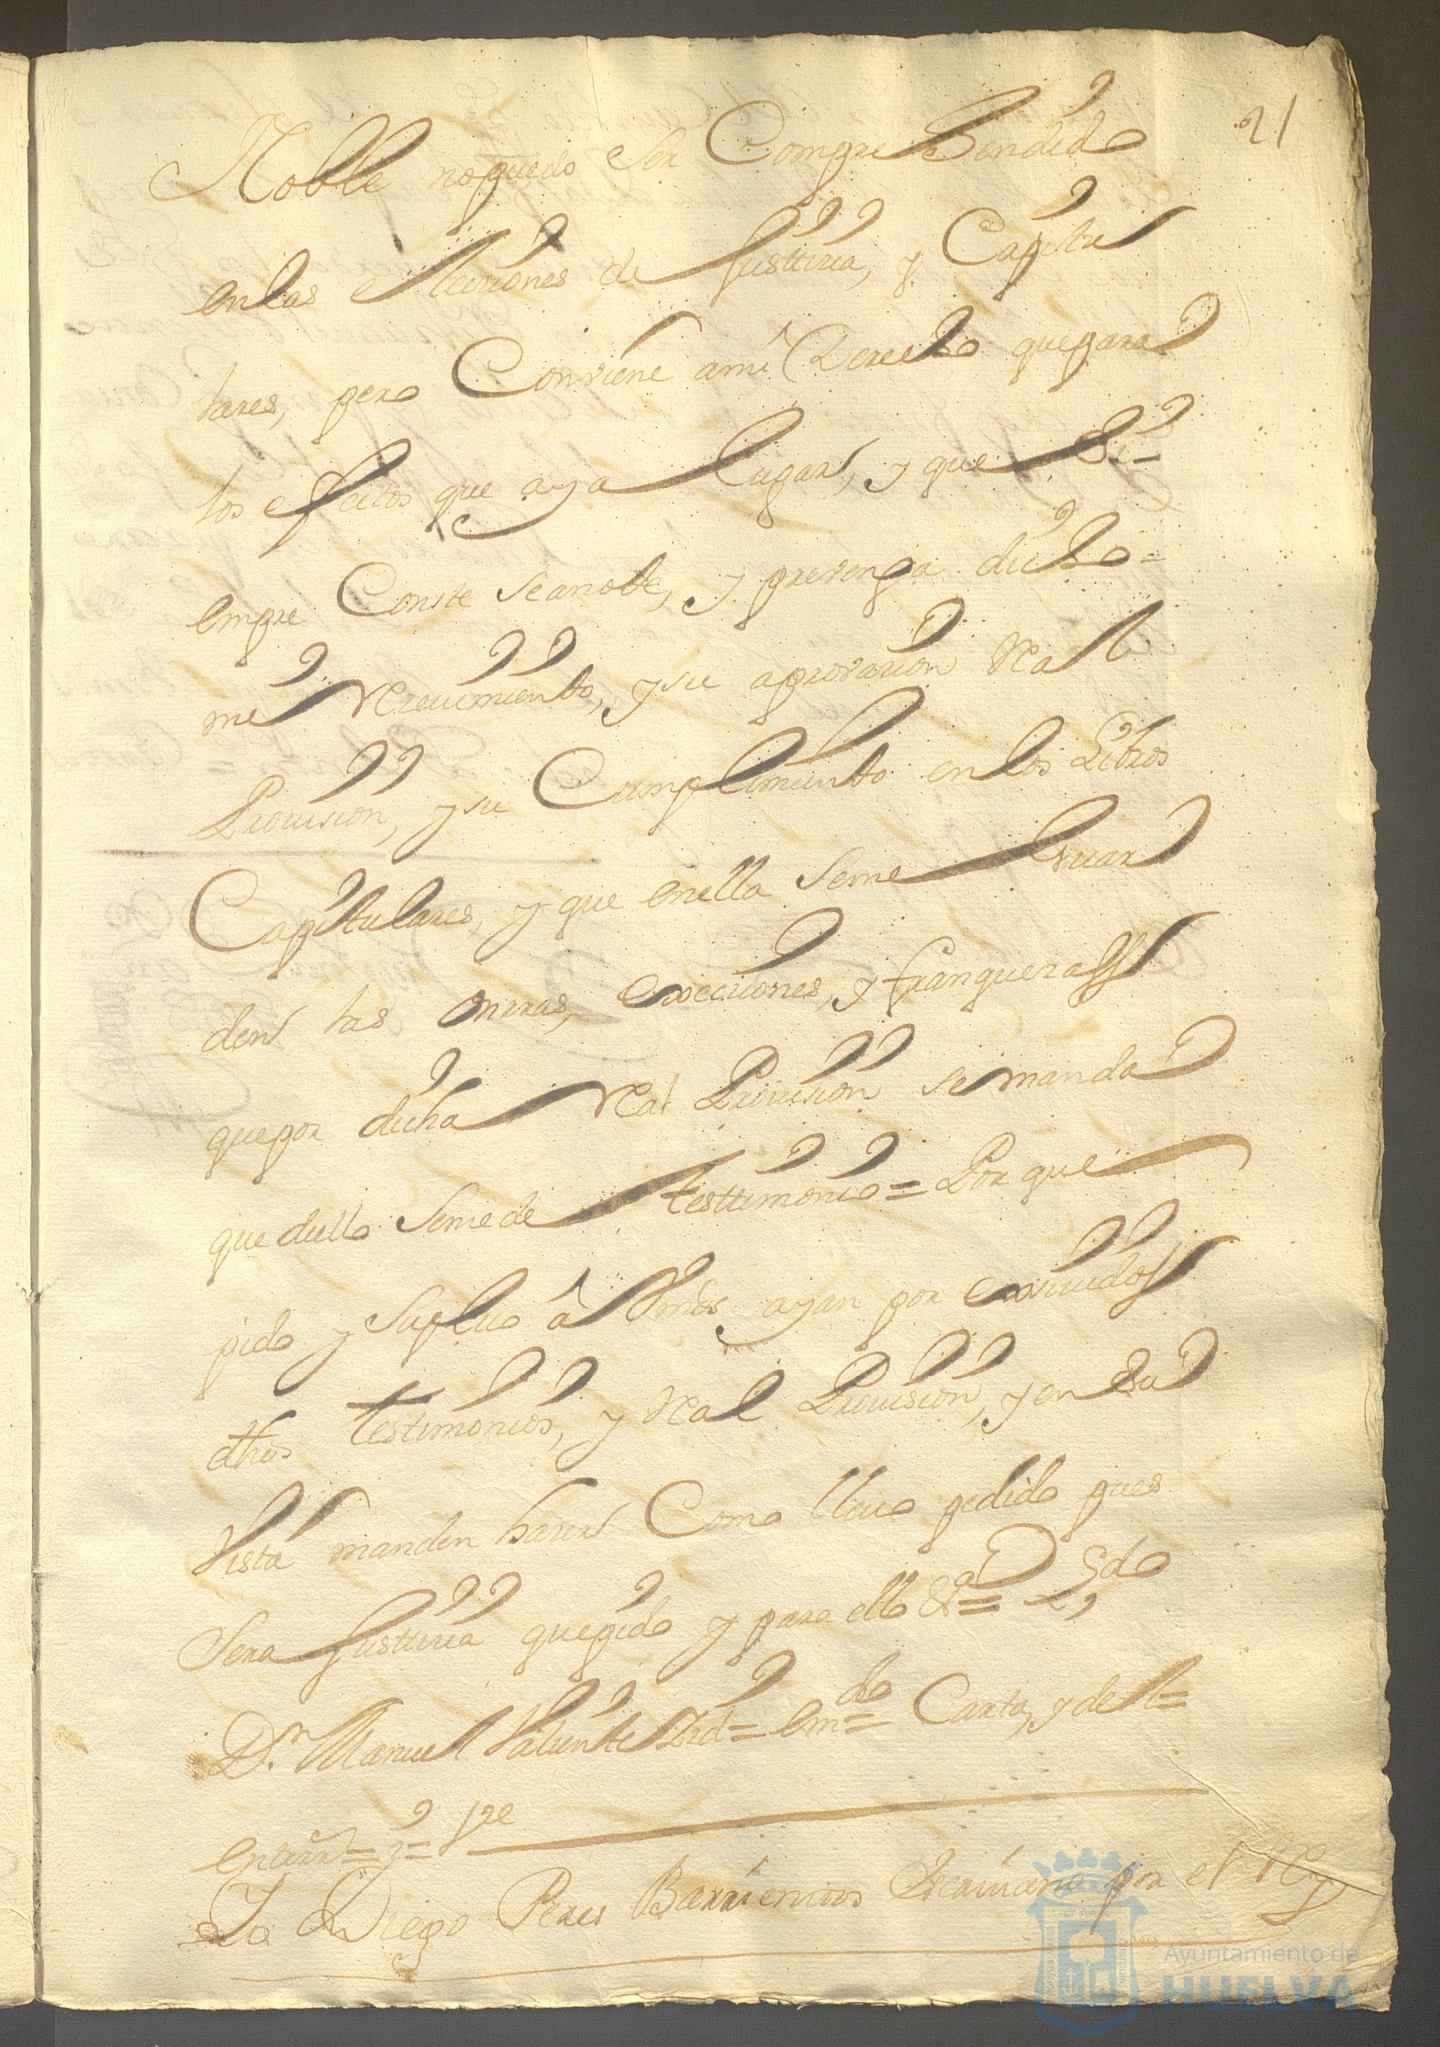 21
Noble nopuedo ser Comprehendido
enlas elecciones de Justticia, y Capitu
lares, pero Conviene ami Derecho quepara
los efectos que aya lugar, y que Si=
empre Conste seanote, y prevenga dicho=
mi Recivimiento, ysu aprovacion Real
Provision, ysu Cumplimiento enlos Libros
Capitulares, y que enella seme Guar
den las onrras, execciones, y franquezas
quepor dicha Real Provision se manda
que dello seme de testtimonio= Por que
pido y Suplico â Vmds ayan por exsividos
dhos testimonios, y Real Provision, y en su
vista manden hazer Como llevo pedido pues
Sera Justticia quepido y para ello &a=
Dn Manuel Valiente= Carta, y del=
Yo Diego Peres Barrientos Escrivano por el Rey
Ayuntamiento de
HUELVA